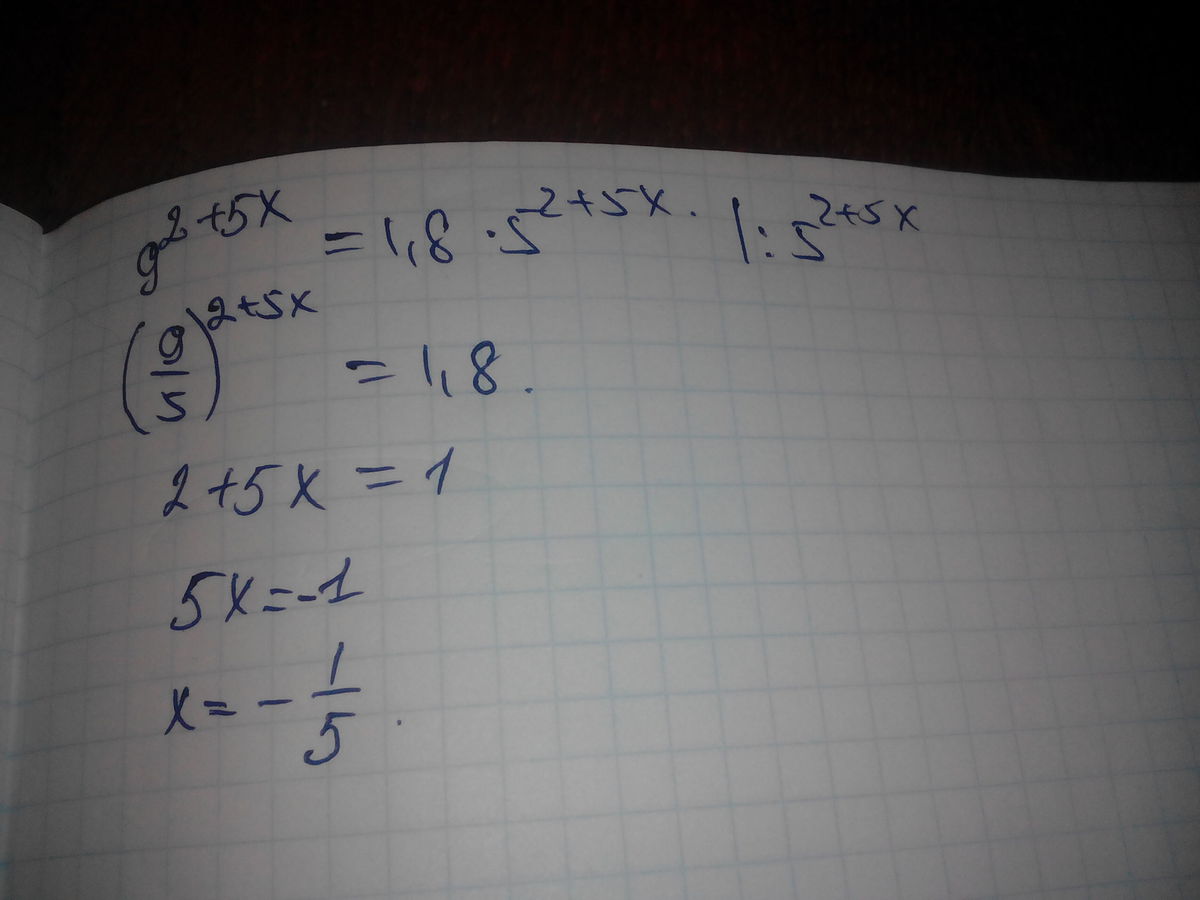 9^{2+5x} = 1,8 · 5^{2+5x}. |: 5^{2+5x}
(9/5)^{2+5x} = 1,8.
2+5x = 1
5x=-1
x= - 1/5.